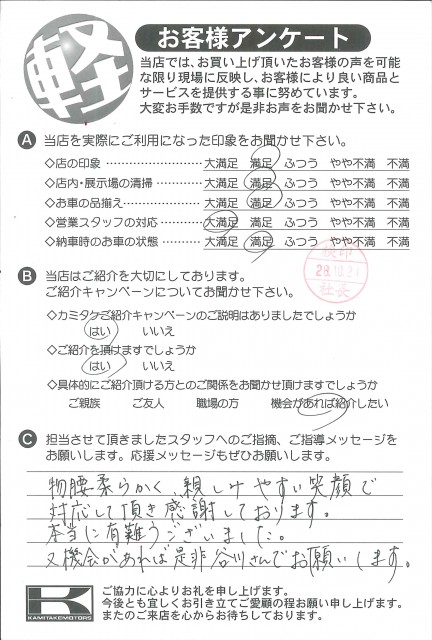 軽
お客様アンケート
当店では、お買い上げ頂いたお客様の声を可能
な限り現場に反映し、お客様により良い商品と
サービスを提供する事に努めています。
大変お手数ですが是非お声をお聞かせ下さい。
A 当店を実際にご利用になった印象をお聞かせ下さい。
◇店の印象 ……………………… 大満足 満足 ふつう やや不満 不満
◇店内・展示場の清掃 ………… 大満足 満足 ふつう やや不満 不満
◇お車の品揃え ………………… 大満足 満足 ふつう やや不満 不満
◇営業スタッフの対応 ………… 大満足 満足 ふつう やや不満 不満
◇納車時のお車の状態 ………… 大満足 満足 ふつう やや不満 不満
検印
28.10.24
社長
B 当店はご紹介を大切にしております。
ご紹介キャンペーンについてお聞かせ下さい。
◇カミタケご紹介キャンペーンのご説明はありましたでしょうか
はい いいえ
◇ご紹介を頂けますでしょうか
はい いいえ
◇具体的にご紹介頂ける方とのご関係をお聞かせ頂けますでしょうか
ご親族 ご友人 職場の方 機会があれば紹介したい
C 担当させて頂きましたスタッフへのご指摘、ご指導メッセージを
お願いします。応援メッセージもぜひお願いします。
物腰柔らかく、親しみやすい笑顔で
対応して頂き感謝しております。
本当に有難うございました。
又機会があれば是非谷川さんでお願いします。
K
KAMITAKEMOTORS
ご協力に心よりお礼を申し上げます。
今後とも宜しくお引き立てご愛顧の程お願い申し上げます。
またのご来店を心からお待ちしております。